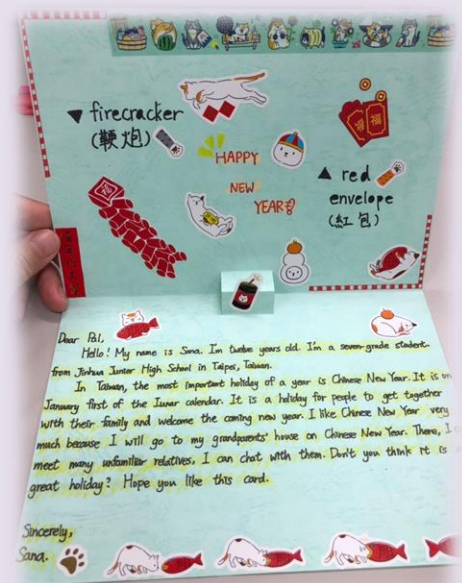 ▼ firecracker
(鞭炮)
HAPPY
NEW
YEAR!!
▲ red
envelope
(紅包)
福
Dear Pal,
Hello! My name is Sana. I'm twelve years old. I'm a seven-grade student
from Jinhua Junior High School in Taipei, Taiwan.
In Taiwan, the most important holiday of a year is Chinese New Year. It is on
January first of the lunar calendar. It is a holiday for people to get together
with their family and welcome the coming new year. I like Chinese New Year very
much because I will go to my grandparents' house on Chinese New Year. There, I
meet many unfamiliar relatives, I can chat with them. Don't you think it is
great holiday? Hope you like this card.
Sincerely,
Sana.